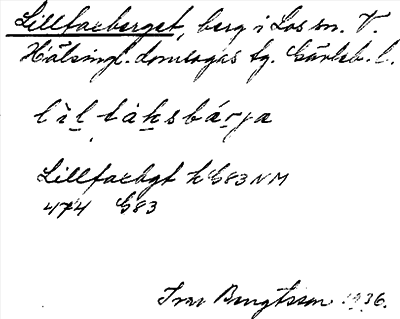 Lillfaxberget, berg i Los sn. V.
Hälsingl. domsagas tg. Gävleb. l.
lìl fàksbárja
Lillfaxbgt k G83 NM
474 G83
Ivar Bengtsson 1936.